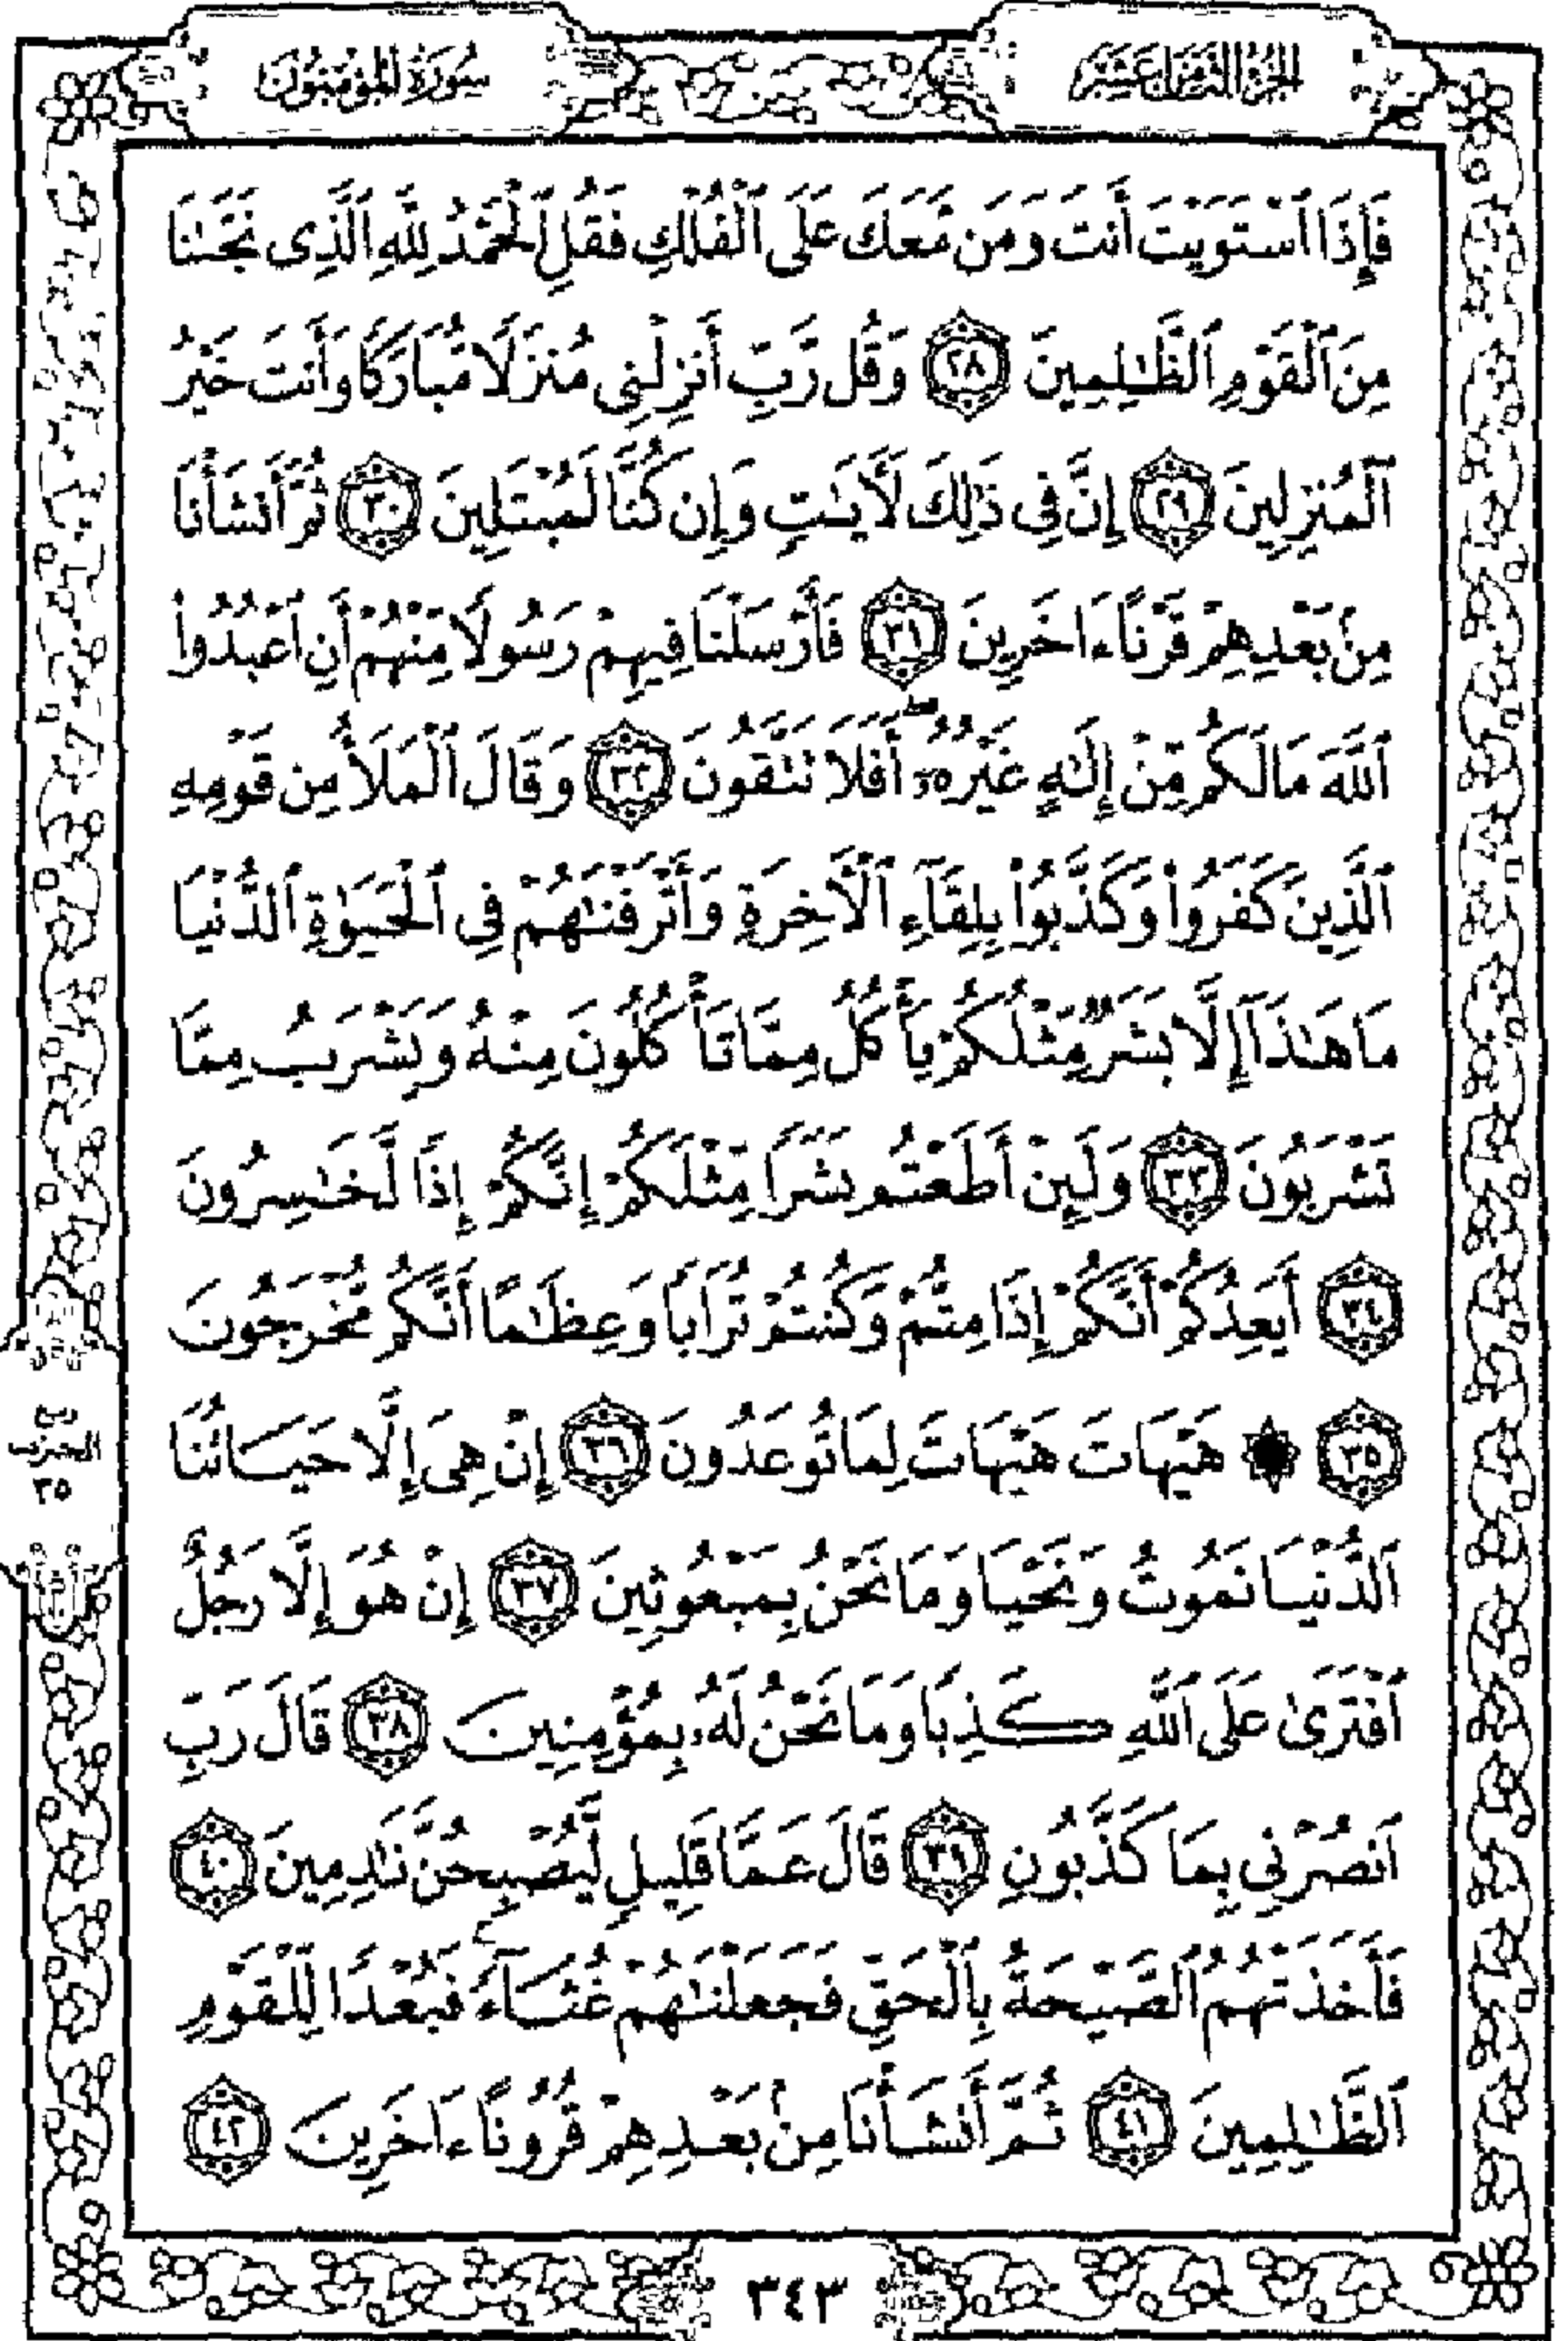 الجزء الثامن عشر
سورة المؤمنون
فَإِذَا ٱسْتَوَيْتَ أَنتَ وَمَن مَّعَكَ عَلَى ٱلْفُلْكِ فَقُلِ ٱلْحَمْدُ لِلَّهِ ٱلَّذِى نَجَّىٰنَا
مِنَ ٱلْقَوْمِ ٱلظَّٰلِمِينَ ٢٨ وَقُل رَّبِّ أَنزِلْنِى مُنزَلًا مُّبَارَكًا وَأَنتَ خَيْرُ
ٱلْمُنزِلِينَ ٢٩ إِنَّ فِى ذَٰلِكَ لَءَايَٰتٍ وَإِن كُنَّا لَمُبْتَلِينَ ٣٠ ثُمَّ أَنشَأْنَا
مِنۢ بَعْدِهِمْ قَرْنًا ءَاخَرِينَ ٣١ فَأَرْسَلْنَا فِيهِمْ رَسُولًا مِّنْهُمْ أَنِ ٱعْبُدُوا۟
ٱللَّهَ مَا لَكُم مِّنْ إِلَٰهٍ غَيْرُهُۥٓ ۖ أَفَلَا تَتَّقُونَ ٣٢ وَقَالَ ٱلْمَلَأُ مِن قَوْمِهِ
ٱلَّذِينَ كَفَرُوا۟ وَكَذَّبُوا۟ بِلِقَآءِ ٱلْءَاخِرَةِ وَأَتْرَفْنَٰهُمْ فِى ٱلْحَيَوٰةِ ٱلدُّنْيَا
مَا هَٰذَآ إِلَّا بَشَرٌ مِّثْلُكُمْ يَأْكُلُ مِمَّا تَأْكُلُونَ مِنْهُ وَيَشْرَبُ مِمَّا
تَشْرَبُونَ ٣٣ وَلَئِنْ أَطَعْتُم بَشَرًا مِّثْلَكُمْ إِنَّكُمْ إِذًا لَّخَٰسِرُونَ
٣٤ أَيَعِدُكُمْ أَنَّكُمْ إِذَا مِتُّمْ وَكُنتُمْ تُرَابًا وَعِظَٰمًا أَنَّكُم مُّخْرَجُونَ
٣٥ ۞ هَيْهَاتَ هَيْهَاتَ لِمَا تُوعَدُونَ ٣٦ إِنْ هِىَ إِلَّا حَيَاتُنَا
ٱلدُّنْيَا نَمُوتُ وَنَحْيَا وَمَا نَحْنُ بِمَبْعُوثِينَ ٣٧ إِنْ هُوَ إِلَّا رَجُلٌ
ٱفْتَرَىٰ عَلَى ٱللَّهِ كَذِبًا وَمَا نَحْنُ لَهُۥ بِمُؤْمِنِينَ ٣٨ قَالَ رَبِّ
ٱنصُرْنِى بِمَا كَذَّبُونِ ٣٩ قَالَ عَمَّا قَلِيلٍ لَّيُصْبِحُنَّ نَٰدِمِينَ ٤٠
فَأَخَذَتْهُمُ ٱلصَّيْحَةُ بِٱلْحَقِّ فَجَعَلْنَٰهُمْ غُثَآءً ۚ فَبُعْدًا لِّلْقَوْمِ
ٱلظَّٰلِمِينَ ٤١ ثُمَّ أَنشَأْنَا مِنۢ بَعْدِهِمْ قُرُونًا ءَاخَرِينَ ٤٢
الحزب
٣٥
٣٤٣